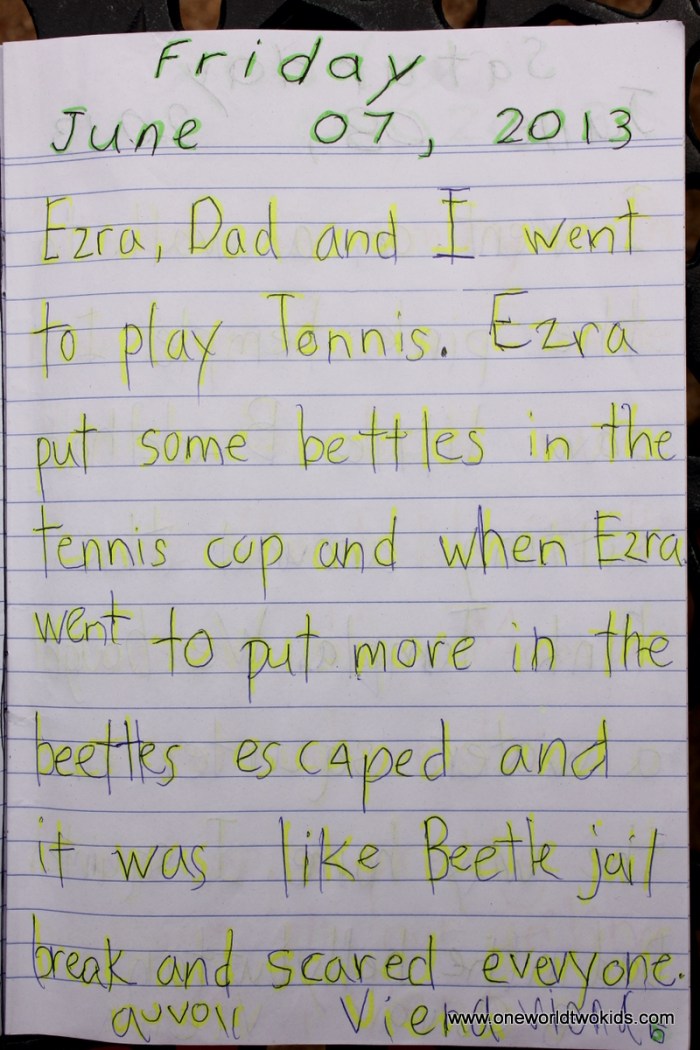 Friday
June 07, 2013
Ezra, Dad and I went
to play Tennis. Ezra
put some bettles in the
tennis cup and when Ezra
went to put more in the
beettles escaped and
it was like Beetle jail
break and scared everyone.
www.oneworldtwokids.com